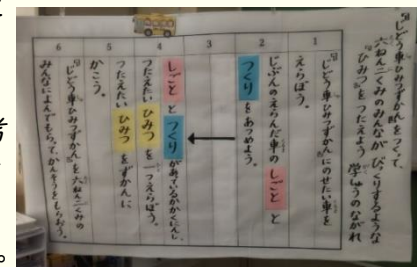 「じどう車ひみつずかん」をつくって、
六ねん二くみのみんながびっくりするような
「ひみつ」をつたえよう 学しゅうのながれ
1
「じどう車ひみつずかん」にのせたい車を
えらぼう。
2
じぶんのえらんだ車の しごと と
つくり をあつめよう。
3
4
しごと と つくり があっているかかくにんし、
つたえたい ひみつ を一つえらぼう。
5
つたえたい ひみつ をずかんに
かこう。
6
「じどう車ひみつずかん」を六ねん二くみの
みんなによんでもらって、かんそうをもらおう。